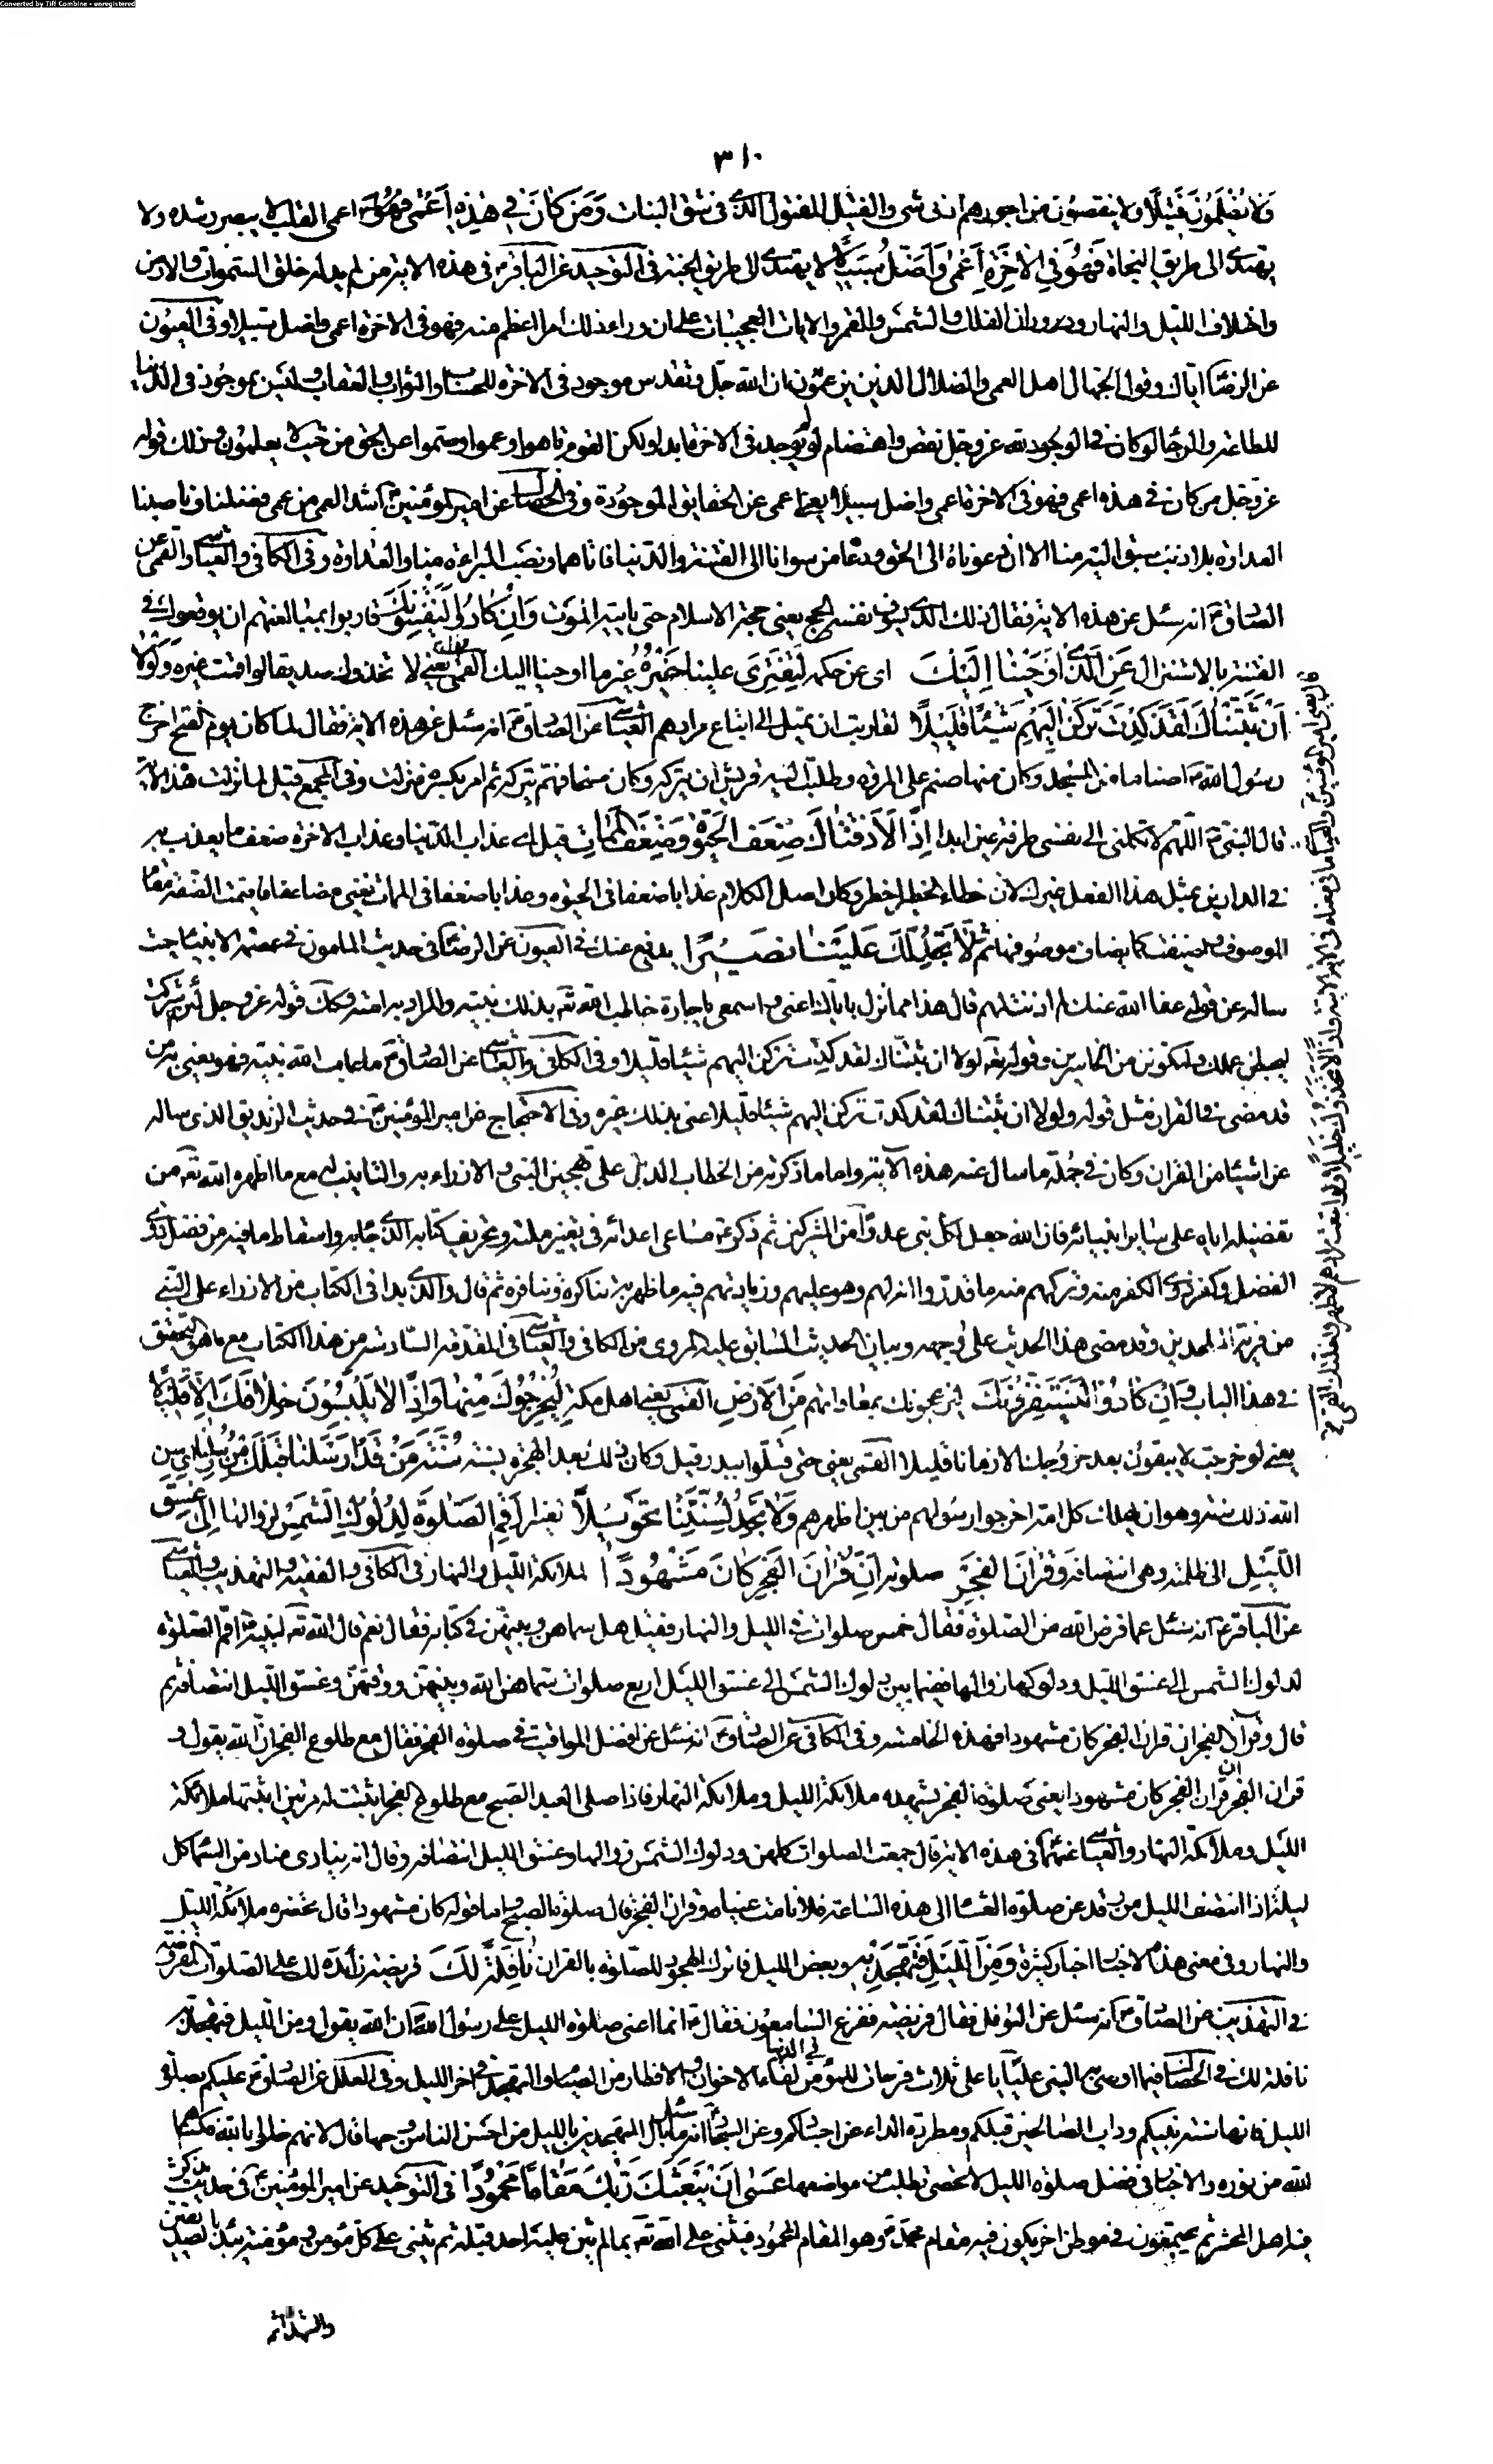 Converted by Tiff Combine - unregistered
٣١٠
وَلا يُظْلَمُونَ فَتِيلًا ولا ينقصون من اجورهم ادنى شى والفتيل المفتول الذى فى شق النواة وَمَنْ كانَ فِي هٰذِهِ أَعْمٰى فَهُوَ اعمى القلب لا يبصر رشده ولا
يهتدى الى طريق النجاة فَهُوَ فِي الْاخِرَةِ أَعْمٰى وَأَضَلُّ سَبِيلًا لا يهتدى الى طريق الجنة فى التوحيد عن الباقر ع فى هذه الاية من لم يدله خلق السموات والارض
واختلاف الليل والنهار ودوران الفلك والشمس والقمر والايات العجيبات على ان وراء ذلك امر اعظم منه فهو فى الاخرة اعمى واضل سبيلا وفى العيون
عن الرضا ع اياك وقول الجهال اهل العمى والضلال الذين يزعمون ان الله جل وتقدس موجود فى الاخرة للحساب والثواب والعقاب وليس بموجود فى الدنيا
للطاعة والرجا لو كان فى الوجود لله عز وجل نقص واهتضام لم يوجد فى الاخرة ابدا ولكن القوم تاهوا وعموا وصموا عن الحق من حيث لا يعلمون وذلك قوله
عز وجل من كان فى هذه اعمى فهو فى الاخرة اعمى واضل سبيلا يعنى اعمى عن الحقايق الموجودة وفى الخصال عن امير المؤمنين ع اشد العمى من عمى فضلنا وناصبنا
العداوة بلا ذنب سبق اليه منا الا ان دعوناه الى الحق ودعاه من سوانا الى الفتنة والدنيا فاتاهما ونصب البراءة منا والعداوة وفى الكافى والعياشى والقمى عن
الصادق ع انه سئل عن هذه الاية فقال ذلك الذى يسوف نفسه الحج يعنى حجة الاسلام حتى ياتيه الموت وَإِنْ كادُوا لَيَفْتِنُونَكَ قاربوا بمبالغتهم ان يوقعوك فى
الفتنة بالاستنزال عَنِ الَّذِي أَوْحَيْنا إِلَيْكَ اى عن حكمه لِتَفْتَرِيَ علينا غَيْرَهُ غير ما اوحينا اليك القمى يعنى لاتخذوك صديقا لو اقمت غيره وَلَوْلا
أَنْ ثَبَّتْناكَ لَقَدْ كِدْتَ تَرْكَنُ إِلَيْهِمْ شَيْئًا قَلِيلًا لقاربت ان تميل الى اتباع مرادهم العياشى عن الصادق ع انه سئل عن هذه الاية فقال لما كان يوم الفتح اخرج
رسول الله ص اصناما من المسجد وكان منها صنم على المروة وطلبت اليه قريش ان يتركه وكان مستحيا فهم بتركه ثم امر بكسره فنزلت وفى المجمع قيل لما نزلت هذه الاية
قال النبى ص اللهم لا تكلنى الى نفسى طرفة عين ابدا إِذًا لَأَذَقْناكَ ضِعْفَ الْحَيٰوةِ وَضِعْفَ الْمَماتِ قيل اى عذاب الدنيا وعذاب الاخرة ضعف ما يعذب به
فى الدارين بمثل هذا الفعل غيرك لان خطاء الخطير اخطر وكان اصل الكلام عذابا ضعفا فى الحيوة وعذابا ضعفا فى الممات يعنى مضاعفا فاقيمت الصفة مقام
الموصوف واضيفت كما يضاف موصوفها ثُمَّ لا تَجِدُ لَكَ عَلَيْنا نَصِيرًا يدفع عنك فى العيون عن الرضا ع فى حديث المامون فى عصمة الانبيا حيث
ساله عن قوله عفا الله عنك لم اذنت لهم قال هذا مما نزل باياك اعنى واسمعى يا جارة خاطب الله تع بذلك نبيه والمراد به امته وكك قوله عز وجل لئن اشركت
ليحبطن عملك ولتكونن من الخاسرين وقوله تع لولا ان ثبتناك لقد كدت تركن اليهم شيئا قليلا وفى الكافى والعياشى عن الصادق ع ما عاتب الله نبيه فهو يعنى به من
قد مضى فى القران مثل قوله ولولا ان ثبتناك لقد كدت تركن اليهم شيئا قليلا عنى بذلك غيره وفى الاحتجاج عن امير المؤمنين ع فى حديث الزنديق الذى ساله
عن اشيئا من القران وكان فى جملة ما سال عنه هذه الاية واما ما ذكرته من الخطاب الدال على تهجين النبى والازراء به والتانيب له مع ما اظهره الله تع من
تفضيله اياه على ساير انبيائه فان الله جعل لكل نبى عدوا من المشركين ثم ذكر ع مساعى اعدائه فى تغيير ملته وتحريف كتابه الذى جاء به واسقاط ما فيه من فضل ذوى
الفضل وكفر ذوى الكفر منه وتركهم منه ما قدروا انه لهم وهو عليهم وزيادتهم فيه ما ظهر به تناكره وتنافره ثم قال والذى بدا فى الكتاب من الازراء على النبى
من فرية الملحدين وقد مضى هذا الحديث على وجهه وبيان الحديث السابق عليه المروى من الكافى والعياشى فى المقدمة السادسة من هذا الكتاب مع ما هو التحقيق
فى هذا الباب وَإِنْ كادُوا لَيَسْتَفِزُّونَكَ ليزعجونك بمعاداتهم مِنَ الْأَرْضِ القمى يعنى اهل مكة لِيُخْرِجُوكَ مِنْها وَإِذًا لا يَلْبَثُونَ خِلافَكَ إِلَّا قَلِيلًا
يعنى لو خرجت لا يبقون بعد خروجك الا زمانا قليلا القمى يعنى حتى قتلوا ببدر وقيل وكان ذلك بعد الهجرة بسنة سُنَّةَ مَنْ قَدْ أَرْسَلْنا قَبْلَكَ مِنْ رُسُلِنا اى سن
الله ذلك سنة وهو ان يهلك كل امة اخرجوا رسولهم من بين اظهرهم وَلا تَجِدُ لِسُنَّتِنا تَحْوِيلًا تغييرا أَقِمِ الصَّلٰوةَ لِدُلُوكِ الشَّمْسِ لزوالها إِلٰى غَسَقِ
اللَّيْلِ الى ظلمته وهى انتصافه وَقُرْانَ الْفَجْرِ صلوته إِنَّ قُرْانَ الْفَجْرِ كانَ مَشْهُودًا لملائكة الليل والنهار فى الكافى والفقيه والتهذيب والعياشى
عن الباقر ع انه سئل عما فرض الله من الصلوة فقال خمس صلوات فى الليل والنهار فقيل هل سماهن وبينهن فى كتابه فقال نعم قال الله تع لنبيه ص اقم الصلوة
لدلوك الشمس الى غسق الليل ودلوكها زوالها ففيما بين دلوك الشمس الى غسق الليل اربع صلوات سماهن الله وبينهن ووقتهن وغسق الليل انتصافه ثم
قال وقران الفجر ان قران الفجر كان مشهودا فهذه الخامسة وفى الكافى عن الصادق ع انه سئل عن افضل المواقيت فى صلوة الفجر فقال مع طلوع الفجر ان الله يقول و
قران الفجر ان قران الفجر كان مشهودا يعنى صلوة الفجر يشهده ملائكة الليل وملائكة النهار فاذا صلى العبد الصبح مع طلوع الفجر اثبتت له مرتين اثبتها ملائكة
الليل وملائكة النهار والعياشى عنهما ع فى هذه الاية قال جمعت الصلوات كلهن ودلوك الشمس زوالها وغسق الليل انتصافه وقال انه ينادى مناد من السما كل
ليلة اذا انتصف الليل من رقد عن صلوة العشاء الى هذه الساعة فلا نامت عيناه وقران الفجر قال صلوة الصبح واما قوله كان مشهودا قال تحضره ملائكة الليل
والنهار وفى معنى هذه الاخبار اخبار كثيرة وَمِنَ اللَّيْلِ فَتَهَجَّدْ بِهِ وبعض الليل فاترك الهجود للصلوة بالقران نافِلَةً لَكَ فريضة زائدة لك على الصلوات المفروضة
فى التهذيب عن الصادق ع انه سئل عن النوافل فقال فريضة ففزع السامعون فقال ع انما اعنى صلوة الليل على رسول الله ص ان الله يقول ومن الليل فتهجد به
نافلة لك فى الخصال فيما اوصى به النبى عليا يا على ثلاث فرحات للمؤمن فى الدنيا لقاء الاخوان والافطار من الصيام والتهجد فى اخر الليل وفى العلل عن الصادق ع عليكم بصلوة
الليل فانها سنة نبيكم وداب الصالحين قبلكم ومطردة الداء عن اجسادكم وعن السجاد ع انه سئل ما بال المتهجدين بالليل من احسن الناس وجها قال لانهم خلوا بالله فكساهم
الله من نوره والاخبار فى فضل صلوة الليل لا تحصى تطلب من مواضعها عَسٰى أَنْ يَبْعَثَكَ رَبُّكَ مَقامًا مَحْمُودًا فى التوحيد عن امير المؤمنين ع فى حديث يذكر
فيه اهل المحشر ثم يجتمعون فى موطن اخر يكون فيه مقام محمد ص وهو المقام المحمود فيثنى على الله تع بما لم يثن عليه احد قبله ثم يثنى على كل مؤمن ومؤمنة يبدا بالصديقين
والشهداء ثم